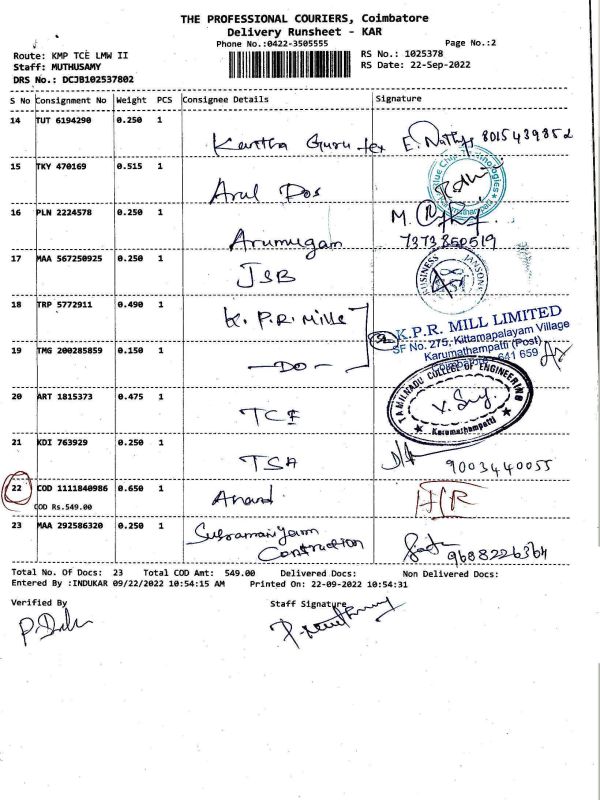 THE PROFESSIONAL COURIERS, Coimbatore
Delivery Runsheet - KAR
Phone No.:0422-3505555 Page No.:2
Route: KMP TCE LMW II RS No.: 1025378
Staff: MUTHUSAMY RS Date: 22-Sep-2022
DRS No.: DCJB102537802
S No Consignment No Weight PCS Consignee Details Signature
14 TUT 6194290 0.250 1
Kartha Guru tex E. 8015439852
15 TKY 470169 0.515 1
Arul Dos
16 PLN 2224578 0.250 1
Arumugam M.
7373850519
17 MAA 567250925 0.250 1
JSB BUSINESS JANSONS
18 TRP 5772911 0.490 1
K. P.R. Mills K.P.R. MILL LIMITED
SF No. 275, Kittamapalayam Village
Karumathampatti (Post)
641 659
19 TMG 200285859 0.150 1
—DO—
20 ART 1815373 0.475 1
TCE TAMILNADU COLLEGE OF ENGINEERING
Karumathampatti
21 KDI 763929 0.250 1
TSA 9003440055
22 COD 1111840986 0.650 1
COD Rs.549.00
Anand
23 MAA 292586320 0.250 1
Subramaniyam
Contruction 9688226364
Total No. Of Docs: 23 Total COD Amt: 549.00 Delivered Docs: Non Delivered Docs:
Entered By :INDUKAR 09/22/2022 10:54:15 AM Printed On: 22-09-2022 10:54:31
Verified By Staff Signature